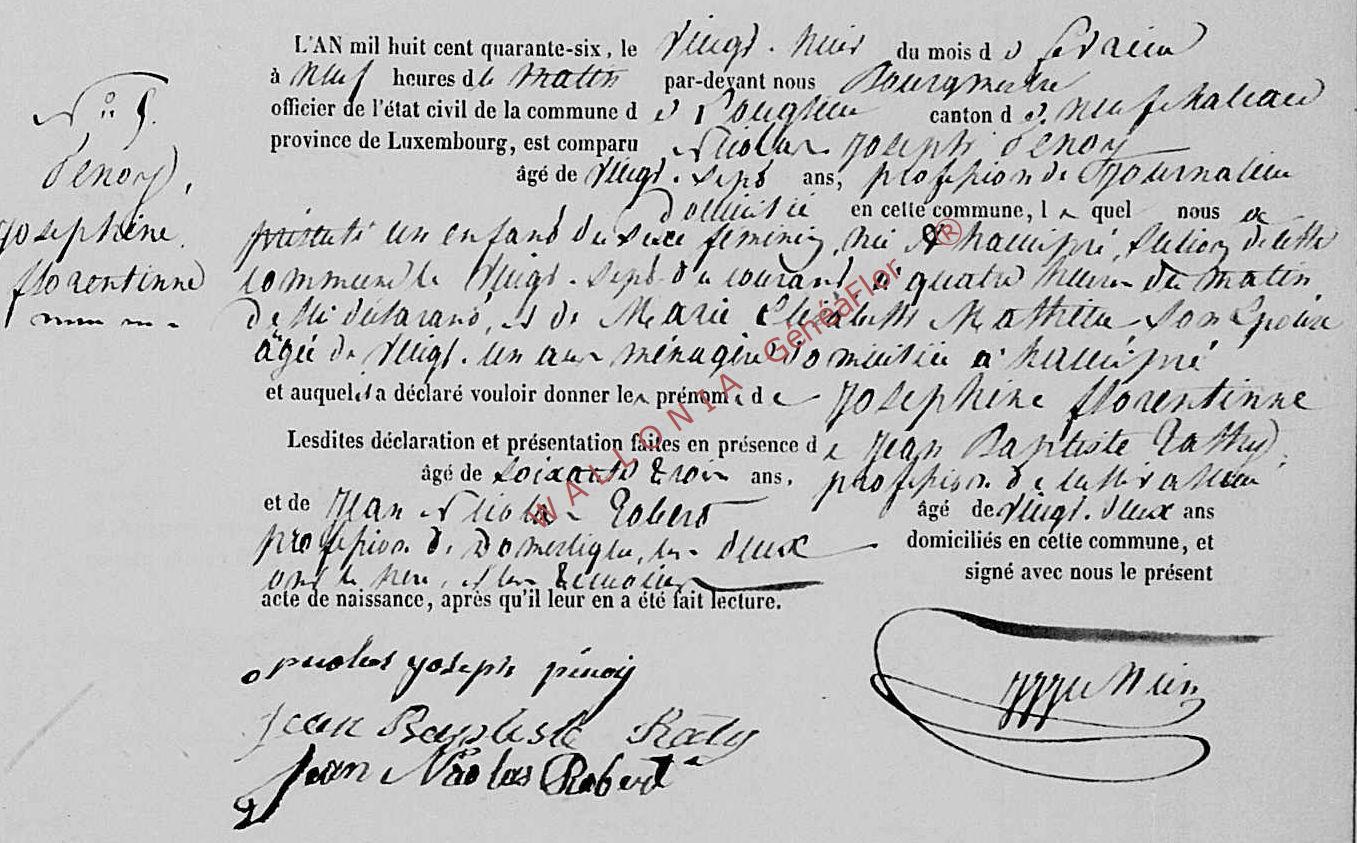 N° 5.
Penoy,
Josephine
florentinne
L'AN mil huit cent quarante-six, le Vingt-huit du mois de fevrier
à neuf heures de matin par-devant nous Bourgmestre
officier de l'état civil de la commune de Longlier canton de Neufchateau
province de Luxembourg, est comparu Nicolas Joseph Penoy
âgé de Vingt-sept ans, profession de Journalier
Domicilié en cette commune, lequel nous a
présenté un enfant du sexe feminin, né a hamipré, section de cette
commune le Vingt-sept du courant, a quatre heures du matin
de lui déclarant, et de Marie Elisabeth Mathieu son Epouse
âgée de Vingt-un ans ménagère Domiciliée a hamipré
et auquel il a déclaré vouloir donner les prénoms de Josephine florentinne
Lesdites déclaration et présentation faites en présence de Jean Baptiste Rathy,
âgé de soixante trois ans, profession de cultivateur
et de Jean Nicolas Robert âgé de Vingt-deux ans
profession de Domestique, les deux domiciliés en cette commune, et
ont le père, et les temoins signé avec nous le présent
acte de naissance, après qu'il leur en a été fait lecture.
nicolas joseph pénoy
Jean Baptiste Raty
Jean Nicolas Robert
WALLONIA GénéaFlor ®